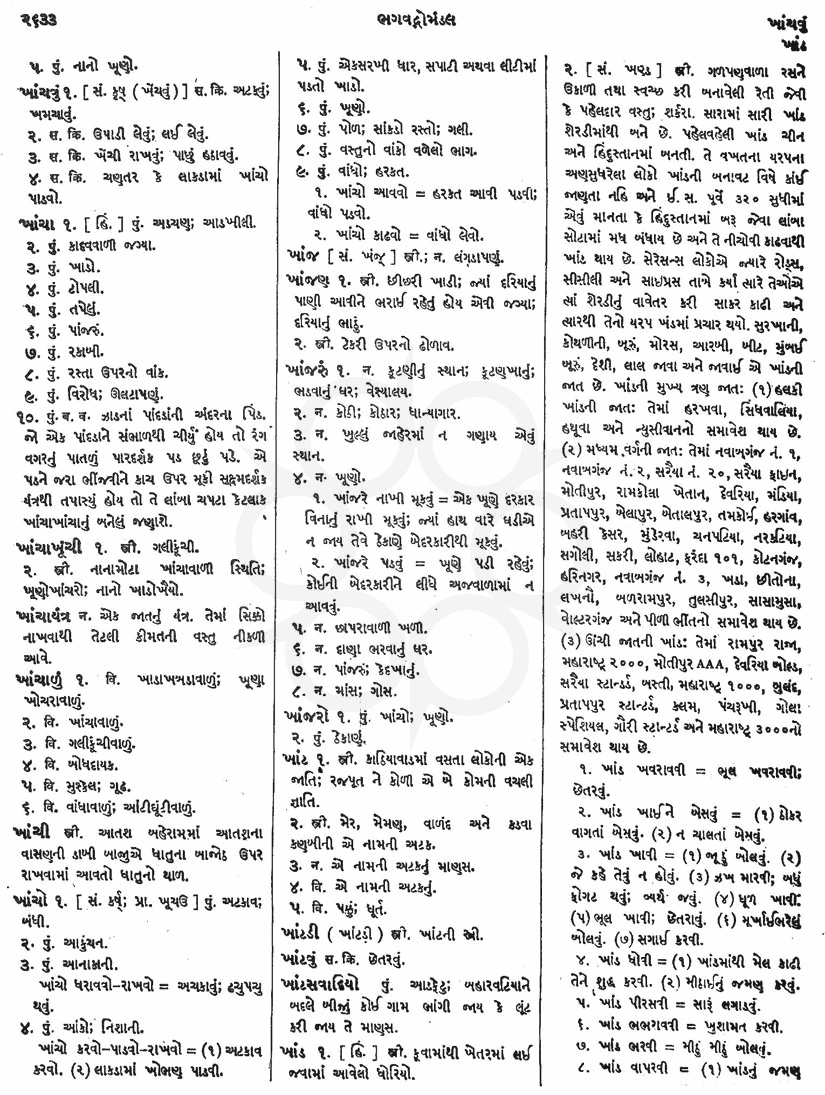 ૨૬૩૩
ભગવદ્ગોમંડલ
ખાંચવું
ખાંડ
૫. પું. નાનો ખૂણો.
ખાંચવું ૧. [ સં. કૃષ્ ( ખેંચવું ) ] સ. ક્રિ. અટકવું;
ખમચાવું.
૨. સ. ક્રિ. ઉપાડી લેવું; લઈ લેવું.
૩. સ. ક્રિ. ખેંચી રાખવું; પાછું હઠાવવું.
૪. સ. ક્રિ. ચણતર કે લાકડામાં ખાંચો
પાડવો.
ખાંચા ૧. [ હિં. ] પું. અડચણ; આડખીલી.
૨. પું. કાદવવાળી જગ્યા.
૩. પું. ખાડો.
૪. પું. ટોપલી.
૫. પું. તપેલું.
૬. પું. પાંજરું.
૭. પું. રકાબી.
૮. પું. રસ્તા ઉપરનો વાંક.
૯. પું. વિરોધ; ઊલટાપણું.
૧૦. પું. બ. વ. ઝાડનાં પાંદડાંની અંદરના પિંડ.
જો એક પાંદડાને સંભાળથી ચીર્યું હોય તો રંગ
વગરનું પાતળું પારદર્શક પડ છૂટું પડે. એ
પડને જરા ભીંજવીને કાચ ઉપર મૂકી સૂક્ષ્મદર્શક
યંત્રથી તપાસ્યું હોય તો તે લાંબા ચપટા કેટલાક
ખાંચાખાંચાનું બનેલું જણાશે.
ખાંચાખૂંચી ૧. સ્ત્રી. ગલીકૂંચી.
૨. સ્ત્રી. નાનામોટા ખાંચાવાળી સ્થિતિ;
ખૂણોખાંચરો; નાનો ખાડોખૈયો.
ખાંચાયંત્ર ન. એક જાતનું યંત્ર. તેમાં સિક્કો
નાખવાથી તેટલી કીમતની વસ્તુ નીકળી
આવે.
ખાંચાળું ૧. વિ. ખાડાખબડાવાળું; ખૂણા
ખોચરાવાળું.
૨. વિ. ખાંચાવાળું.
૩. વિ. ગલીકૂંચીવાળું.
૪. વિ. બોધદાયક.
૫. વિ. મુશ્કેલ; ગૂઢ.
૬. વિ. વાંધાવાળું; આંટીઘૂંટીવાળું.
ખાંચી સ્ત્રી. આતશ બહેરામમાં આતશના
વાસણની ડાબી બાજુએ ધાતુના બાજોઠ ઉપર
રાખવામાં આવતો ધાતુનો થાળ.
ખાંચો ૧. [ સં. કર્ષ્; પ્રા. ખૂચઉ ] પું. અટકાવ;
બંધી.
૨. પું. આકુંચન.
૩. પું. આનાકાની.
ખાંચો ધરાવવો–રાખવો = અચકાવું; ઢચુપચુ
થવું.
૪. પું. આંકો; નિશાની.
ખાંચો કરવો–પાડવો–રાખવો = (૧) અટકાવ
કરવો. (૨) લાકડામાં ખોભણ પાડવી.
૫. પું. એકસરખી ધાર, સપાટી અથવા લીટીમાં
પડતો ખાડો.
૬. પું. ખૂણો.
૭. પું. પોળ; સાંકડો રસ્તો; ગલી.
૮. પું. વસ્તુનો વાંકો વળેલો ભાગ.
૯. પું. વાંધો; હરકત.
૧. ખાંચો આવવો = હરકત આવી પડવી;
વાંધો પડવો.
૨. ખાંચો કાઢવો = વાંધો લેવો.
ખાંજ [ સં. ખંજ્ ] સ્ત્રી.; ન. લંગડાપણું.
ખાંજણ ૧. સ્ત્રી. છીછરી ખાડી; જ્યાં દરિયાનું
પાણી આવીને ભરાઈ રહેતું હોય એવી જગ્યા;
દરિયાનું ભાઠું.
૨. સ્ત્રી. ટેકરી ઉપરનો ઢોળાવ.
ખાંજરું ૧. ન. કૂટણીનું સ્થાન; કૂટણખાનું;
ભડવાનું ઘર; વેશ્યાલય.
૨. ન. કોઠી; કોઠાર; ધાન્યાગાર.
૩. ન. ખુલ્લું જાહેરમાં ન ગણાય એવું
સ્થાન.
૪. ન. ખૂણો.
૧. ખાંજરે નાખી મૂકવું = એક ખૂણે દરકાર
વિનાનું રાખી મૂકવું; જ્યાં હાથ વારે ઘડીએ
ન જાય તેવે ઠેકાણે બેદરકારીથી મૂકવું.
૨. ખાંજરે પડવું = ખૂણે પડી રહેવું;
કોઈની બેદરકારીને લીધે અજવાળામાં ન
આવવું.
૫. ન. છાપરાવાળી ખળી.
૬. ન. દાણા ભરવાનું ઘર.
૭. ન. પાંજરું; કેદખાનું.
૮. ન. માંસ; ગોસ.
ખાંજરો ૧. પું. ખાંચો; ખૂણો.
૨. પું. ઠેકાણું.
ખાંટ ૧. સ્ત્રી. કાઠિયાવાડમાં વસતા લોકોની એક
જાતિ; રજપૂત ને કોળી એ બે કોમની વચલી
જ્ઞાતિ.
૨. સ્ત્રી. મેર, મેમણ, વાળંદ અને કડવા
કણબીની એ નામની અટક.
૩. ન. એ નામની અટકનું માણસ.
૪. વિ. એ નામની અટકનું.
૫. વિ. પકું; ધૂર્ત.
ખાંટડી ( ખાંટડી ) સ્ત્રી. ખાંટની સ્ત્રી.
ખાંટવું સ. ક્રિ. છેતરવું.
ખાંટસવાદિયો પું. આડફેટુ; બહારવટિયાને
બદલે બીજું કોઈ ગામ ભાંગી જાય કે લૂંટ
કરી જાય તે માણસ.
ખાંડ ૧. [ હિં. ] સ્ત્રી. કૂવામાંથી ખેતરમાં લઈ
જવામાં આવેલો ધોરિયો.
૨. [ સં. ખણ્ડ ] સ્ત્રી. ગળપણવાળા રસને
ઉકાળી તથા સ્વચ્છ કરી બનાવેલી રેતી જેવી
કે પહેલદાર વસ્તુ; શર્કરા. સારામાં સારી ખાંડ
શેરડીમાંથી બને છે. પહેલવહેલી ખાંડ ચીન
અને હિંદુસ્તાનમાં બનતી. તે વખતના યરપના
અણસુધરેલા લોકો ખાંડની બનાવટ વિષે કાંઈ
જાણતા નહિ અને ઈ. સ. પૂર્વે ૩૨૦ સુધીમાં
એવું માનતા કે હિંદુસ્તાનમાં બરૂ જેવા લાંબા
સોટામાં મધ બંધાય છે અને તે નીચોવી કાઢવાથી
ખાંડ થાય છે. સેરેસન્સ લોકોએ જ્યારે રોડ્સ,
સીસીલી અને સાઇપ્રસ તાબે કર્યાં ત્યારે તેઓએ
ત્યાં શેરડીનું વાવેતર કરી સાકર કાઢી અને
ત્યારથી તેનો યરપ ખંડમાં પ્રચાર થયો. સુરખાની,
કોથળીની, બૂરું, મોરસ, આરબી, બીટ, મુંબઈ
બૂરું, દેશી, લાલ જાવા અને જવાઈ એ ખાંડની
જાત છે. ખાંડની મુખ્ય ત્રણ જાતઃ (૧) હલકી
ખાંડની જાતઃ તેમાં હરખવા, સિધવાલિયા,
હથૂવા અને ન્યુસીવાનનો સમાવેશ થાય છે.
(૨) મધ્યમ વર્ગની જાતઃ તેમાં નવાબગંજ નં. ૧,
નવાબગંજ નં. ૨, સરૈયા નં. ૨૦, સરૈયા ફાઇન,
મોતીપુર, રામકોલા ખેતાન, દેવરિયા, મંઢિયા,
પ્રતાપપુર, ખેલાપુર, બેતાલપુર, તમકોઈ, હરગાંવ,
બહરી કેસર, મુંડેરવા, ચનપટિયા, નરકટિયા,
સગોલી, સકરી, લોહાટ, ફરેંદા ૧૦૧, કોટનગંજ,
હરિનગર, નવાબગંજ નં. ૩, ખડા, છીતોના,
લખનૌ, બળરામપુર, તુલસીપુર, સાસામુસા,
વોલ્ટરગંજ અને પીળી ભીંતનો સમાવેશ થાય છે.
(૩) ઊંચી જાતની ખાંડઃ તેમાં રામપુર રાજા,
મહારાષ્ટ્ર ૨૦૦૦, મોતીપુર AAA, દેવરિયા બોલ્ડ,
સરૈયા સ્ટાન્ડર્ડ, બસ્તી, મહારાષ્ટ્ર ૧૦૦૦, બુલંદ,
પ્રતાપપુર સ્ટાન્ટર્ડ, કલમ, પંચરૂખી, ગોલા
સ્પેશિયલ, ગૌરી સ્ટાન્ટર્ડ અને મહારાષ્ટ્ર ૩૦૦૦નો
સમાવેશ થાય છે.
૧. ખાંડ ખવરાવવી = ભૂલ ખવરાવવી;
છેતરવું.
૨. ખાંડ ખાઈને બેસવું = (૧) ઠોકર
વાગતાં બેસવું. (૨) ન ચાલતાં બેસવું.
૩. ખાંડ ખાવી = (૧) જૂઠું બોલવું. (૨)
જે કહે તેવું ન હોવું. (૩) ઝખ મારવી; બધું
ફોગટ થવું; વ્યર્થ જવું. (૪) ધૂળ ખાવી.
(૫) ભૂલ ખાવી; છેતરાવું. (૬) મૂર્ખાઈભરેલું
બોલવું. (૭) સગાઈ કરવી.
૪. ખાંડ ધોવી = (૧) ખાંડમાંથી મેલ કાઢી
તેને શુદ્ધ કરવી. (૨) મીઠાઈનું જમણ કરવું.
૫. ખાંડ પીરસવી = સારું લગાડવું.
૬. ખાંડ ભભરાવવી = ખુશામત કરવી.
૭. ખાંડ ભરવી = મીઠું મીઠું બોલવું.
૮. ખાંડ વાપરવી = (૧) ખાંડનું જમણ